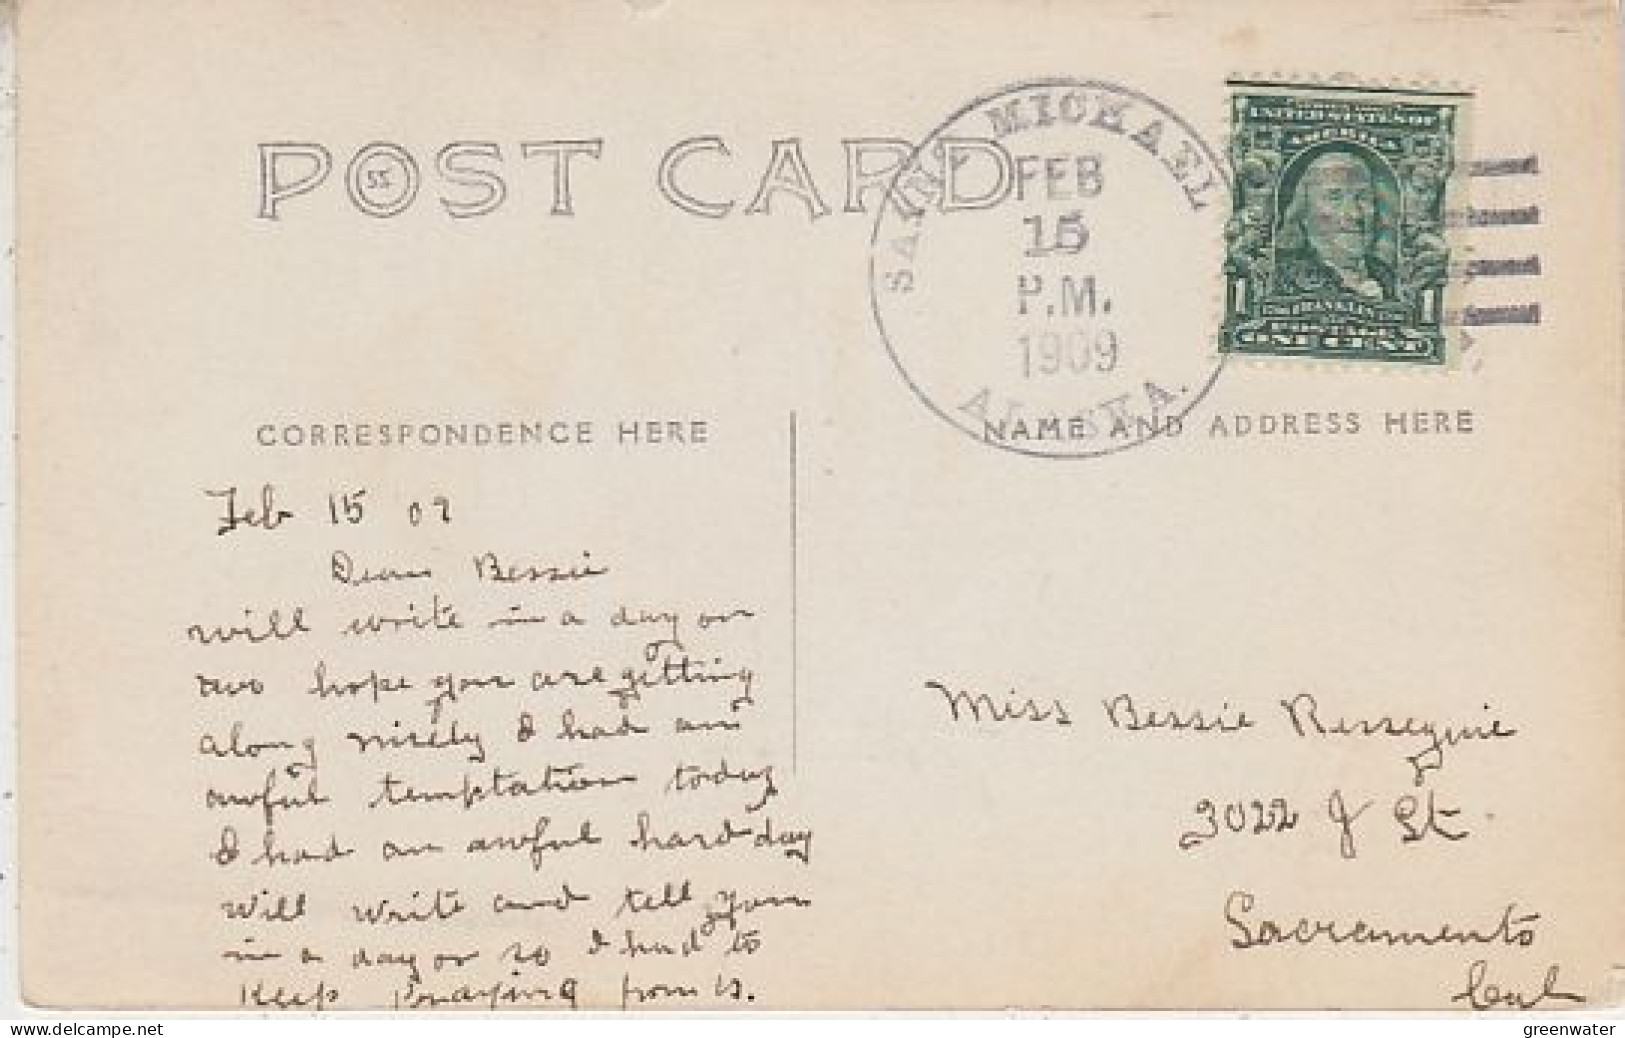 POST CARD
SS
SAINT MICHAEL
FEB
15
P.M.
1909
ALASKA.
UNITED STATES OF
AMERICA
1 1
FRANKLIN
POSTAGE
ONE CENT
CORRESPONDENCE HERE
NAME AND ADDRESS HERE
Feb 15 09
Dear Bessie
will write in a day or
two hope you are getting
along nisely I had an
awful temptation today
I had an awful hard day
will write and tell you
in a day or so I had to
Keep praying
Miss Bessie Ressequie
3022 J St.
Sacramento
Cal
greenwater
delcampe.net